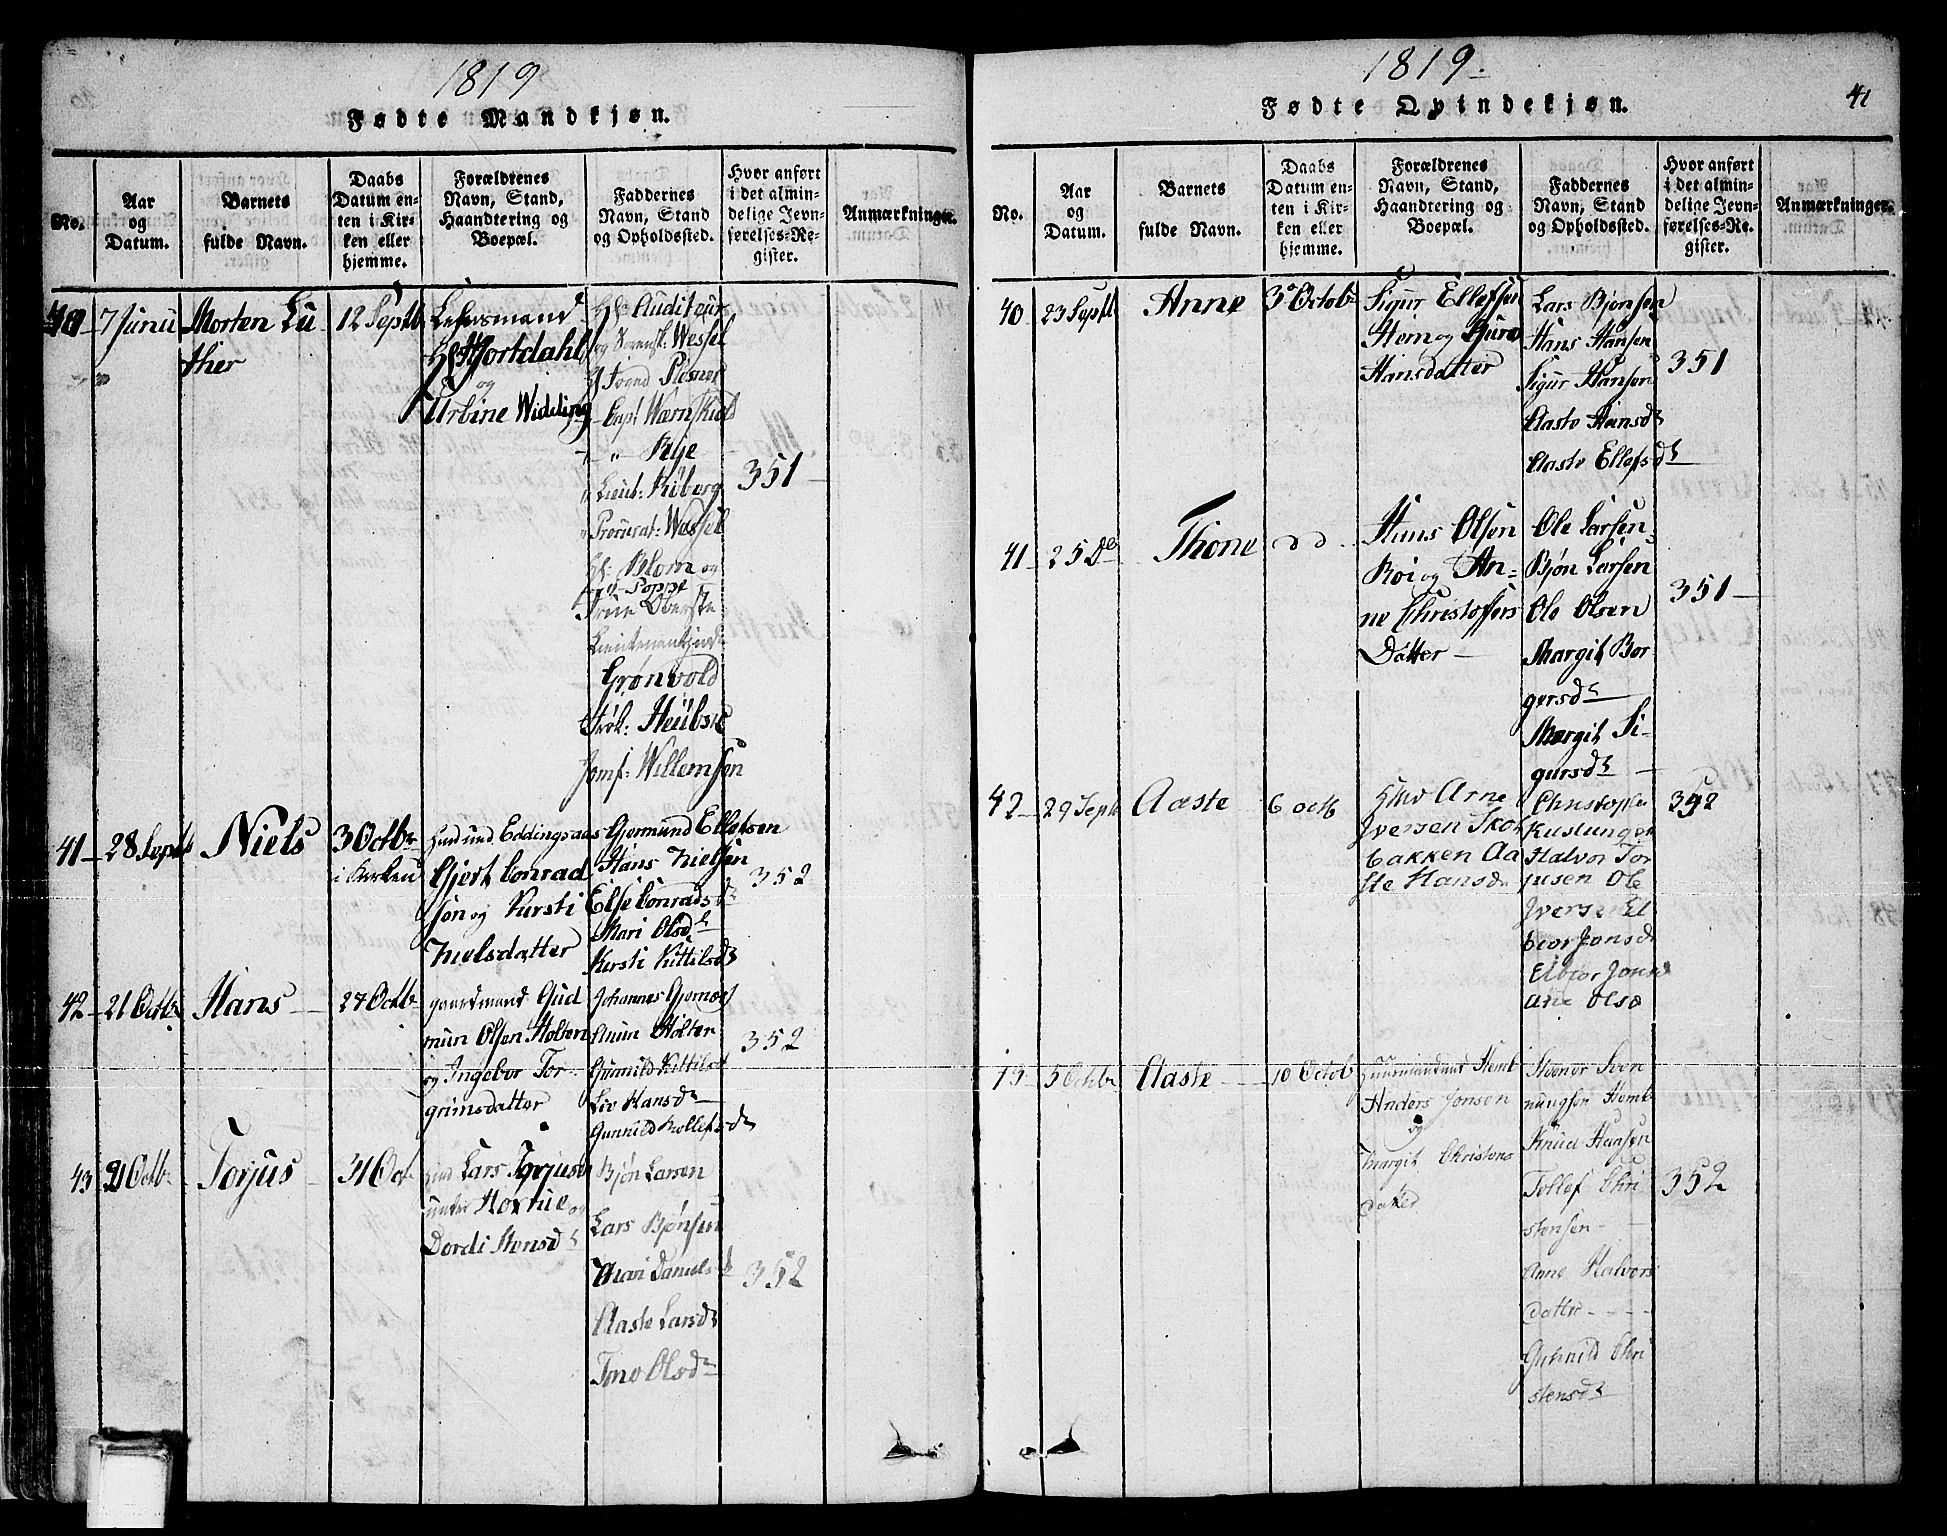 1819
Fødte Mandkjøn.
No.
Aar
og
Datum.
Barnets
fulde Navn.
Daabs
Datum en-
ten i Kir-
ken eller
hjemme.
Forældrenes
Navn, Stand,
Haandtering og
Boepæl.
Faddernes
Navn, Stand
og Opholdssted.
Hvor anført
i det almin-
delige Jevn-
førelses-Re-
gister.
Anmærkninger.
7 Junii
Morten Lu
thier
12 Septb
Lehnsmand
Hr Hjortdahl
og
Urbine Widding
Hr Auditeur
og Sorensk: Wessel
Plesner
Capt Wærnskiold
" Rye
Lieut: Kiborg
Procurat: Wessel
Hr: Blom og
Frue Oberste
Lieutenantinde
Grønvold
Frøk: Heübsch
Jomf: Willemsen
351
41
28 Septb
Niels
3 Octbr
i Kirken
Eddingsaas
Gjert Conrad
søn og Kirsti
Nielsdatter
Gjermund Ellefsen
Hans Nielsen
Else Conradsd
Mari Olsdr
Kirsti Kittilsdr
352
42
21 Octbr
Hans
24 Octbr
gaardmand Gud
mun Olsen Holten
og Ingebor Tor
grimsdatter
Johannes Gjernæs
Amun Holten
Gunnild Kittilsdt
Liv Hansdr
Gunnild Rollefsdr
352
43
21 Octbr
Torjus
31 Oct
Lars Torjusen
Dordi Stensdr
Bjøn Larsen
Lars Bjønsen
Mari Danielsdr
Aaste Larsdr
Tone Olsdr
352
1819.
Fødte Qvindekjøn.
41
No.
Aar
og
Datum.
Barnets
fulde Navn.
Daabs
Datum en-
ten i Kir-
ken eller
hjemme.
Forældrenes
Navn, Stand,
Haandtering og
Boepæl.
Faddernes
Navn, Stand
og Opholdssted.
Hvor anført
i det almin-
delige Jevn-
førelses-Re-
gister.
Anmærkninger.
40
23 Septb
Anne
3 Octobr
Sigur Ellefsen
Hem og Guro
Hansdatter
Lars Bjønsen
Hans Hansen
Sigur Hansen
Aaste Hansdr
Aaste Ellefsdr
351
41
25 Do
Thone
D D
Hans Olsen
Roi og An-
ne Christoffers
Datter
Ole Larsen
Bjøn Larsen
Ole Olsen
Margit Bor
gersdr
Margit Si-
gursdr
351
42
29 Septb
Aaste
6 octb
Arne
Iversen Skot
bakken Aa
ste Hansdr
Halvor Tor
jusen Ole
Iversen El
bior Jonsdr
Elbior Jons
Ane Olsd
352
5 Octbr
Aaste
10 Octob
Huusmand Hemb
Anders Jonsen
og
Margit Christens
datter
nungsen Hemb
Knud Hansen
Tollef Chri
stensen
Anne Halvors
datter
Gunnild Chri
stensdr
352